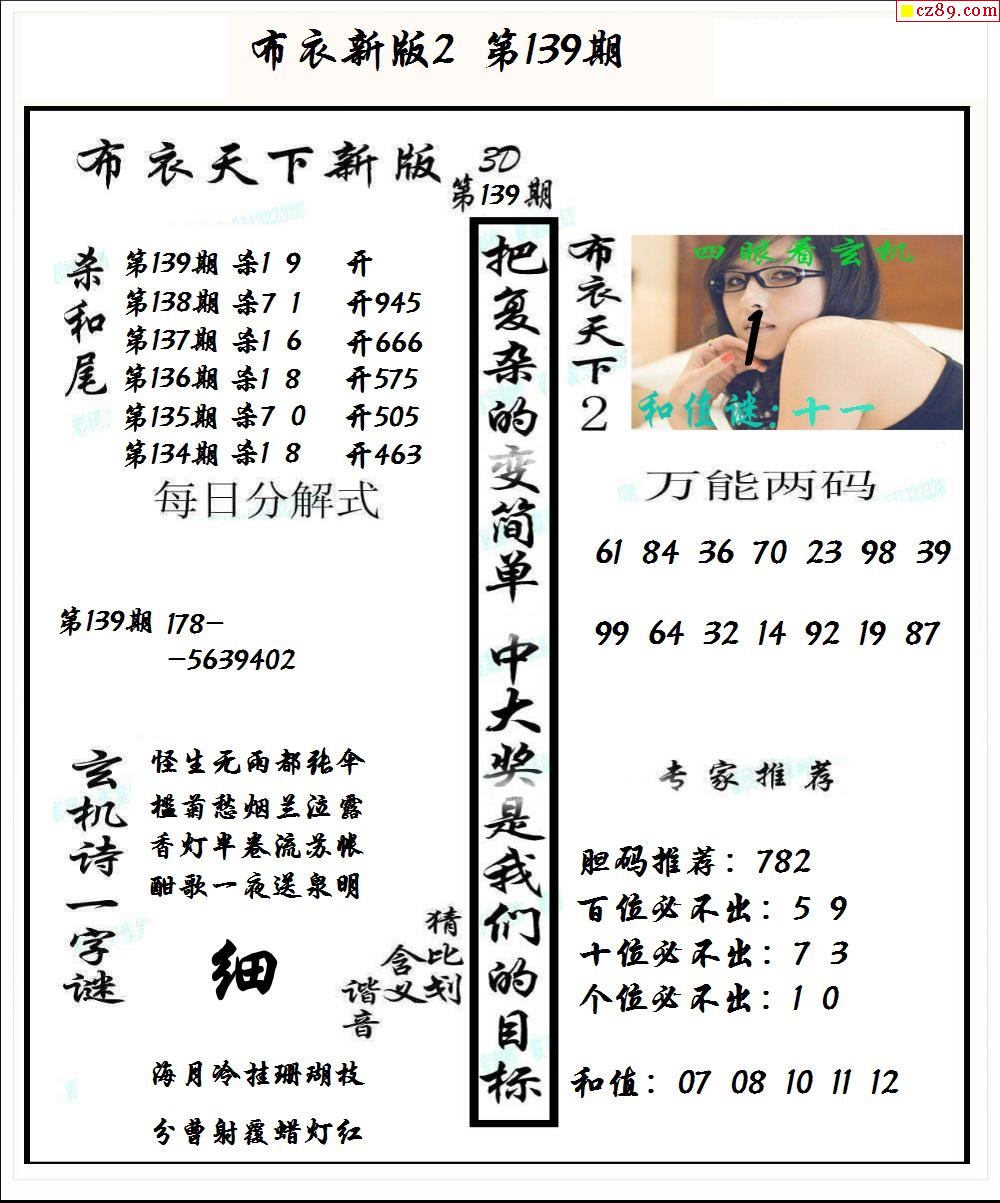 cz89.com
布衣新版2 第139期
布衣天下新版
3D
第139期
杀和尾
第139期 杀1 9 开
第138期 杀7 1 开945
第137期 杀1 6 开666
第136期 杀1 8 开575
第135期 杀7 0 开505
第134期 杀1 8 开463
每日分解式
第139期 178-
-5639402
玄机诗一字谜
怪生无雨都张伞
槛菊愁烟兰泣露
香灯半卷流苏帐
酣歌一夜送泉明
细
猜比划
含义
谐音
海月冷挂珊瑚枝
分曹射覆蜡灯红
把复杂的变简单 中大奖是我们的目标
布衣天下2
四眼看玄机
1
和值谜:十一
万能两码
61 84 36 70 23 98 39
99 64 32 14 92 19 87
专家推荐
胆码推荐：782
百位必不出：5 9
十位必不出：7 3
个位必不出：1 0
和值：07 08 10 11 12